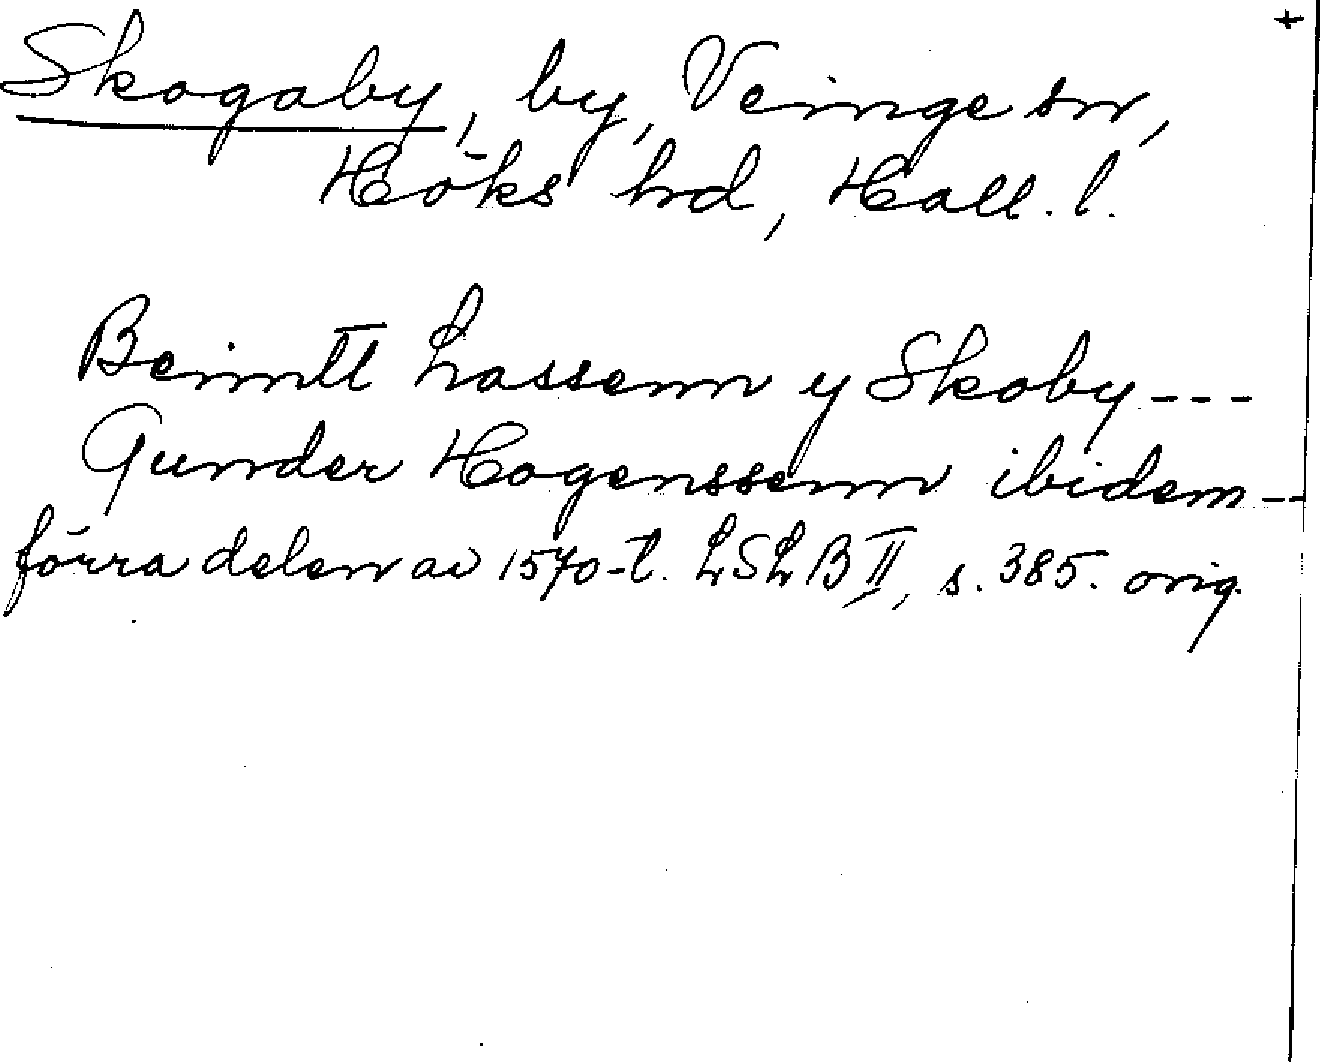 +
Skogaby, by, Veinge sn,
Höks hd, Hall. l.
Beinntt Lassenn y Skoby ---
Gunder Hogenssenn ibidem --
förra delen av 1570-t. LSLB II, s. 385. orig.